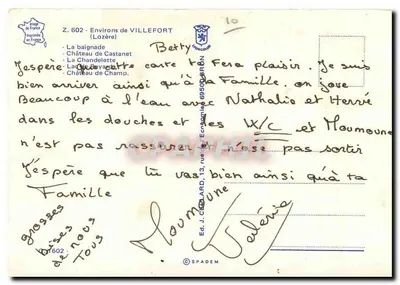 Z. 602 - Environs de VILLEFORT
(Lozère)
- La baignade
- Château de Castanet
- La Chandelette
- Château de Champ.
10
Betty
J'espère que cette carte te Fera plaisir. Je suis
bien arriver ainsi qu'à ta Famille. on joue
Beaucoup à l'eau avec Nathalie et Hervé
dans les douches et des W/C et Moumoune
n'est pas rassurer et n'ose pas sortir
J'espère que tu vas bien ainsi qu'à ta
Famille
grosses
bises
de nous
Tous
Moumoune
Valérie
© SPADEM